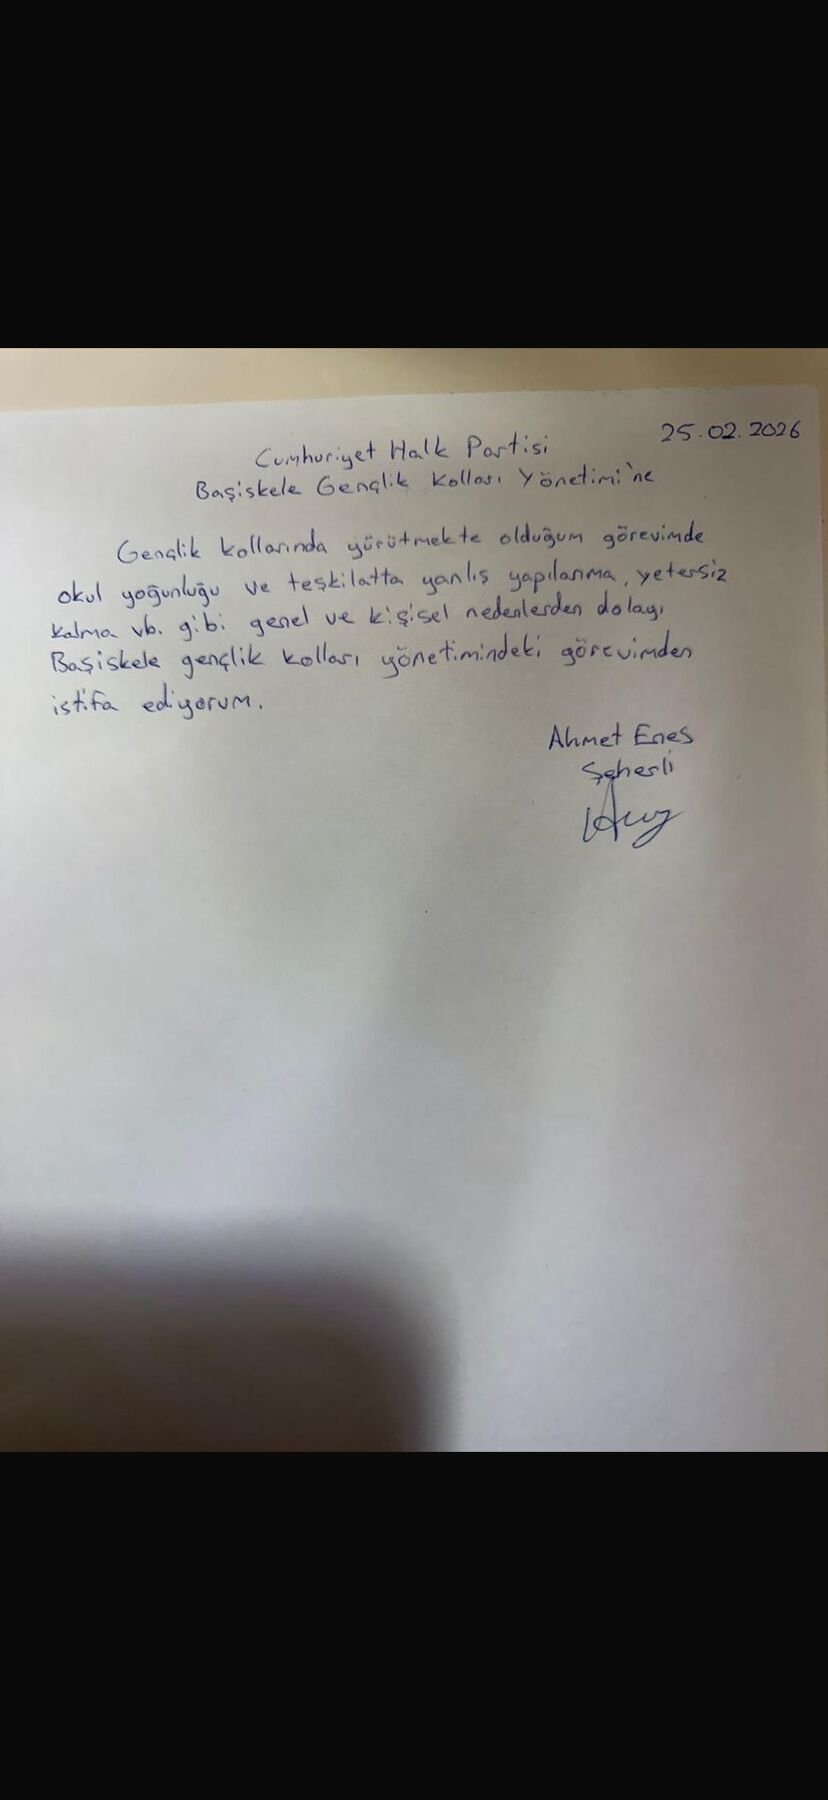 25.02.2026
Cumhuriyet Halk Partisi
Başiskele Gençlik Kolları Yönetimi'ne
Gençlik kollarında yürütmekte olduğum görevimde
okul yoğunluğu ve teşkilatta yanlış yapılanma, yetersiz
kalma vb. gibi genel ve kişisel nedenlerden dolayı
Başiskele gençlik kolları yönetimindeki görevimden
istifa ediyorum.
Ahmet Enes
Seherli